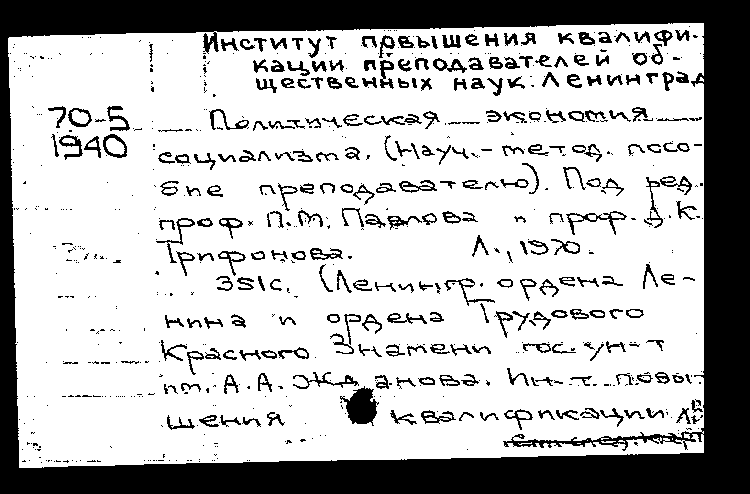 Институт повышения квалифи-
кации преподавателей об-
щественных наук. Ленинград
70-5 Политическая экономия
1940 социализма. (Науч.-метод. посо-
бие преподавателю). Под ред.
проф. П.М. Павлова и проф. Д.К.
Трифонова. Л., 1970.
351с. (Ленингр. ордена Ле-
нина и ордена Трудового
Красного Знамени гос. ун-т
им. А.А. Жданова. Ин-т повы-
шения квалификации
см. след. карт